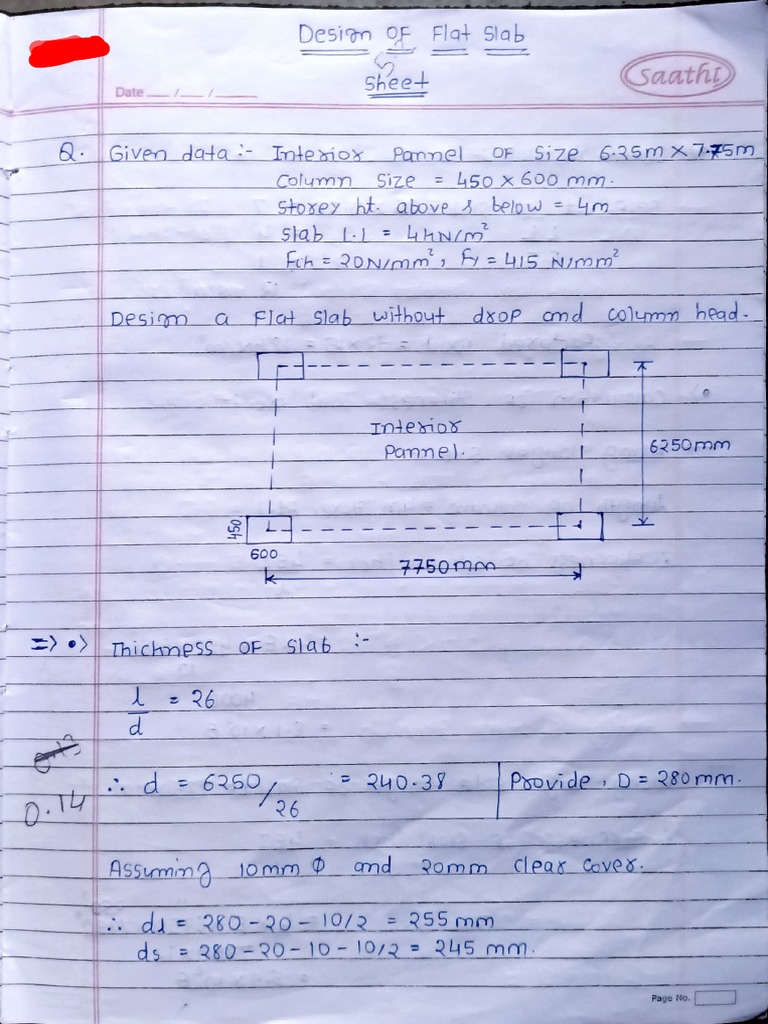 Design OF Flat Slab
Sheet
Saathi
Date __/__/____
Q. Given data :- Interior Pannel OF Size 6.25m × 7.75m
Column Size = 450 × 600 mm.
Storey ht. above & below = 4m
Slab l.l = 4kN/m²
Fck = 20N/mm², Fy = 415 N/mm²
Design a Flat Slab without drop and column head.
Interior
Pannel.
6250mm
450
600
7750mm
=> •> Thickness OF Slab :-
l/d = 26
∴ d = 6250/26 = 240.38 | Provide, D = 280mm.
0.14
Assuming 10mm Φ and 20mm clear cover.
∴ dl = 280 - 20 - 10/2 = 255 mm
ds = 280 - 20 - 10 - 10/2 = 245 mm.
Page No.